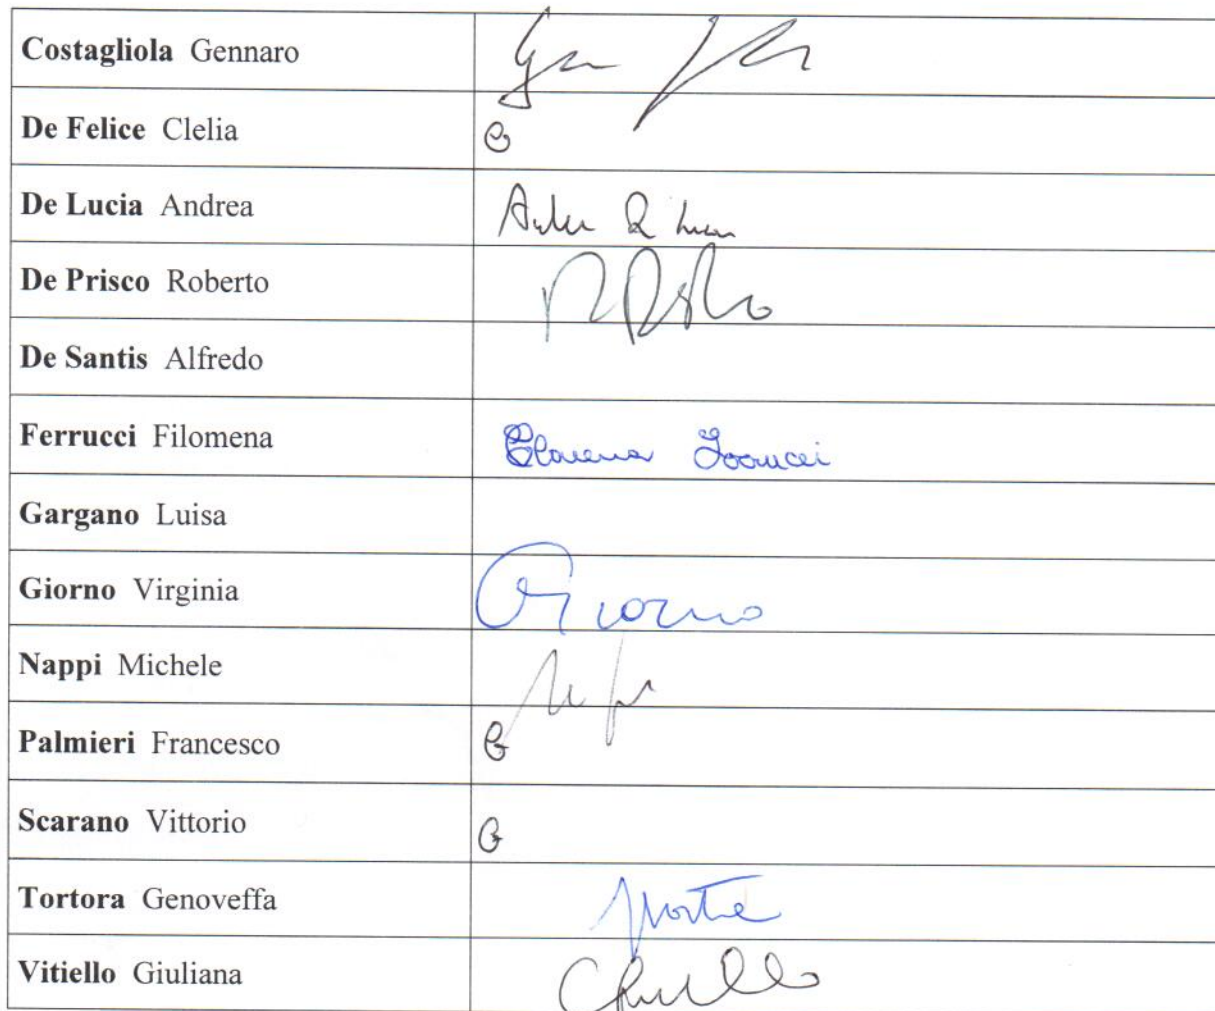 Costagliola Gennaro
De Felice Clelia G
De Lucia Andrea
De Prisco Roberto
De Santis Alfredo
Ferrucci Filomena Filomena Ferrucci
Gargano Luisa
Giorno Virginia Giorno
Nappi Michele
Palmieri Francesco G
Scarano Vittorio G
Tortora Genoveffa
Vitiello Giuliana